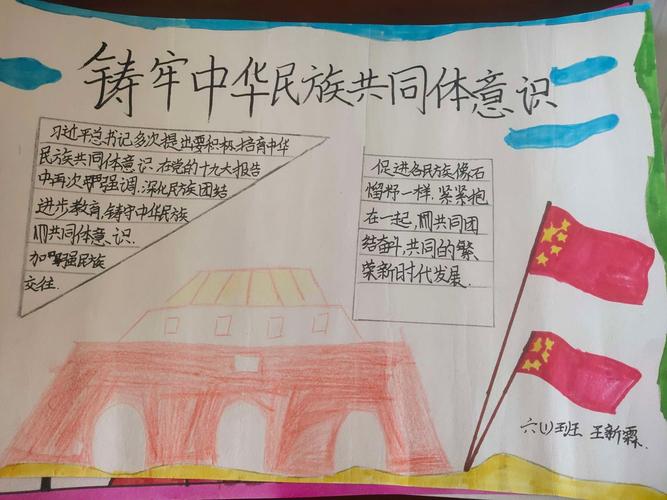 铸牢中华民族共同体意识
习近平总书记多次提出要积极培育中华
民族共同体意识.在党的十九大报告
中再次强调,深化民族团结
进步教育,铸牢中华民族
共同体意识.
加强民族
交往.
促进各民族像石
榴籽一样,紧紧抱
在一起,共同团
结奋斗,共同的繁
荣新时代发展.
六(1)班 王新霖.